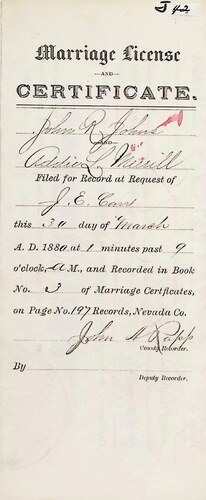 J 42
Marriage License
—AND—
CERTIFICATE.
John R. Johns
—AND—
Addie L. Merrill
Filed for Record at Request of
J. E. Carr
this 30 day of March
A. D. 1880 at 1 minutes past 9
o'clock, A M., and Recorded in Book
No. 3 of Marriage Certficates,
on Page No. 197 Records, Nevada Co.
John W. Rapp
County Recorder.
By
Deputy Recorder.